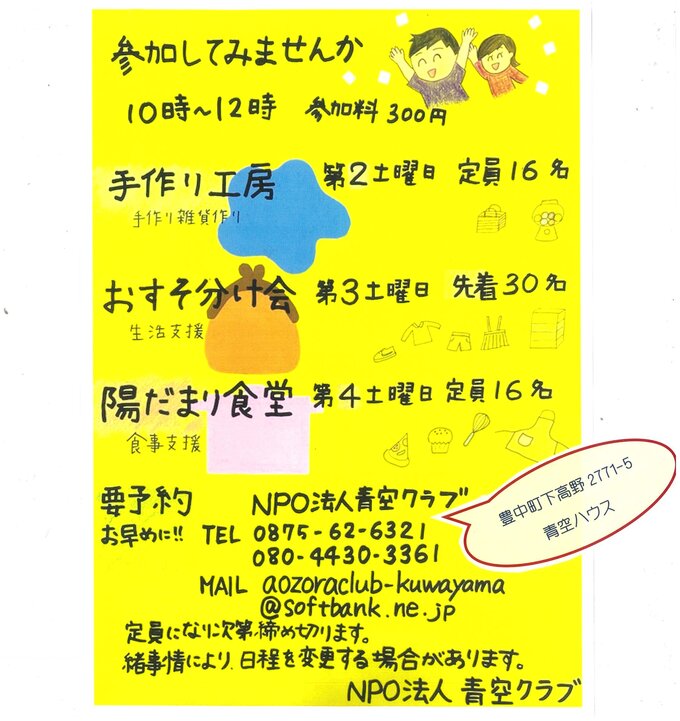 参加してみませんか
10時～12時 参加料300円
手作り工房 第2土曜日 定員16名
手作り雑貨作り
おすそ分け会 第3土曜日 先着30名
生活支援
陽だまり食堂 第4土曜日 定員16名
食事支援
要予約 NPO法人青空クラブ
豊中町下高野2771-5
青空ハウス
お早めに!! TEL 0875-62-6321
080-4430-3361
MAIL aozoraclub-kuwayama
@softbank.ne.jp
定員になり次第締め切ります。
緒事情により、日程を変更する場合があります。
NPO法人 青空クラブ